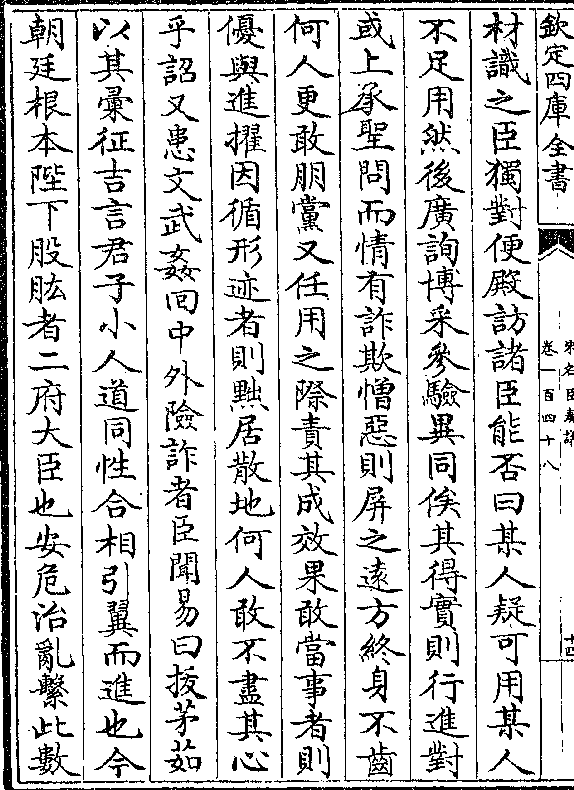 欽定四庫全書
宋名臣奏議
卷一百四十八
十四
材識之臣獨對便殿訪諸臣能否曰某人疑可用某人
不足用然後廣詢博采參驗異同俟其得實則行進對
或上承聖問而情有詐欺憎惡則屏之遠方終身不齒
何人更敢朋黨又任用之際責其成效果敢當事者則
優與進擢因循形迹者則黜居散地何人敢不盡其心
乎詔又患文武姦回中外險詐者臣聞易曰拔茅茹
以其彚征吉言君子小人道同性合相引翼而進也今
朝廷根本陛下股肱者二府大臣也安危治亂繫此數